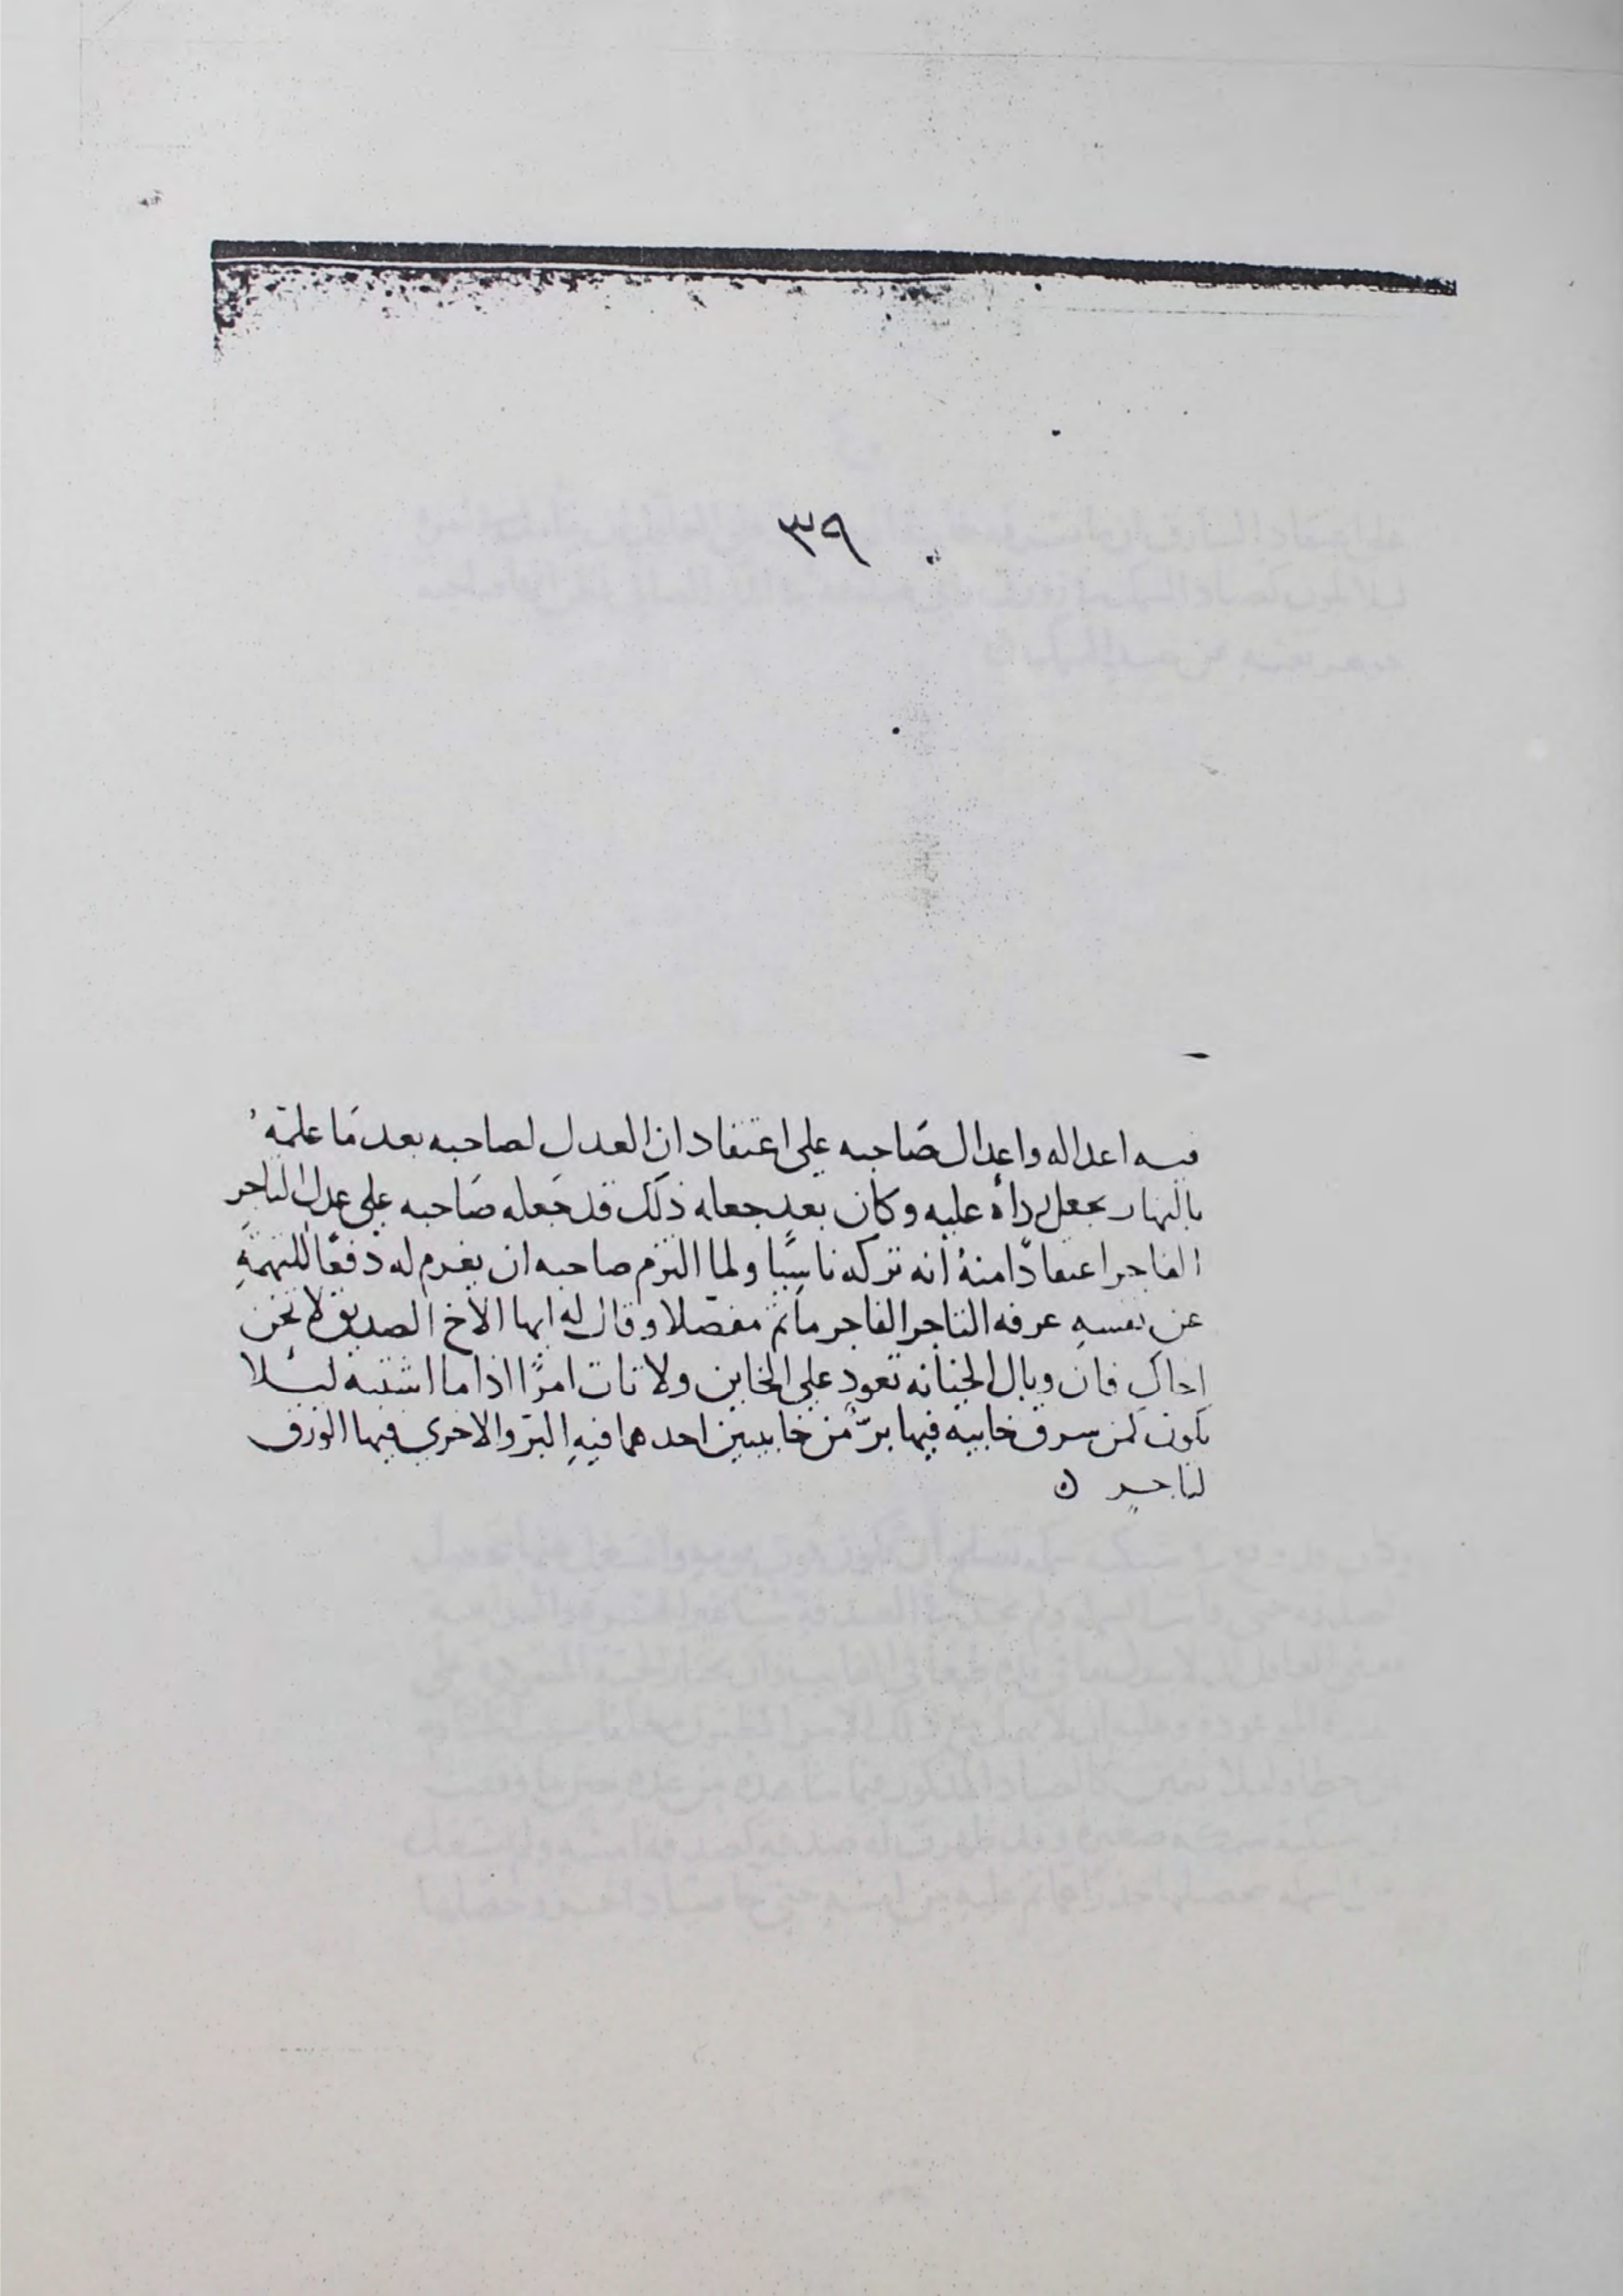 ٣٩
فيه اعداله واعدال صَاحبه على اعتقاد ان العدل لصاحبه بعد مَا علمَهُ
بالنهار بجعل رداه عليه وكان بعد جعله ذلك قد جَعله صَاحبه على عدل التاجر
الفاجر اعتقادًا منهُ انه تركه ناسيًا ولما التزم صاحبه ان يغرم له دفعًا للتهمَةِ
عن نفسهِ عرفه التاجر الفاجر ماتم مفصّلا وقال له ايها الأخ الصديق لا تخن
اخاك فان وبال الخيانه تعود على الخاين ولا تات امرًا اذا ما اشتبه ليلا
تكون كمن سرق خابيه فيها برٌّ من خابيتين احدهما فيهِ البرّ والاخري فيها الورق
لتاجرٍ ه